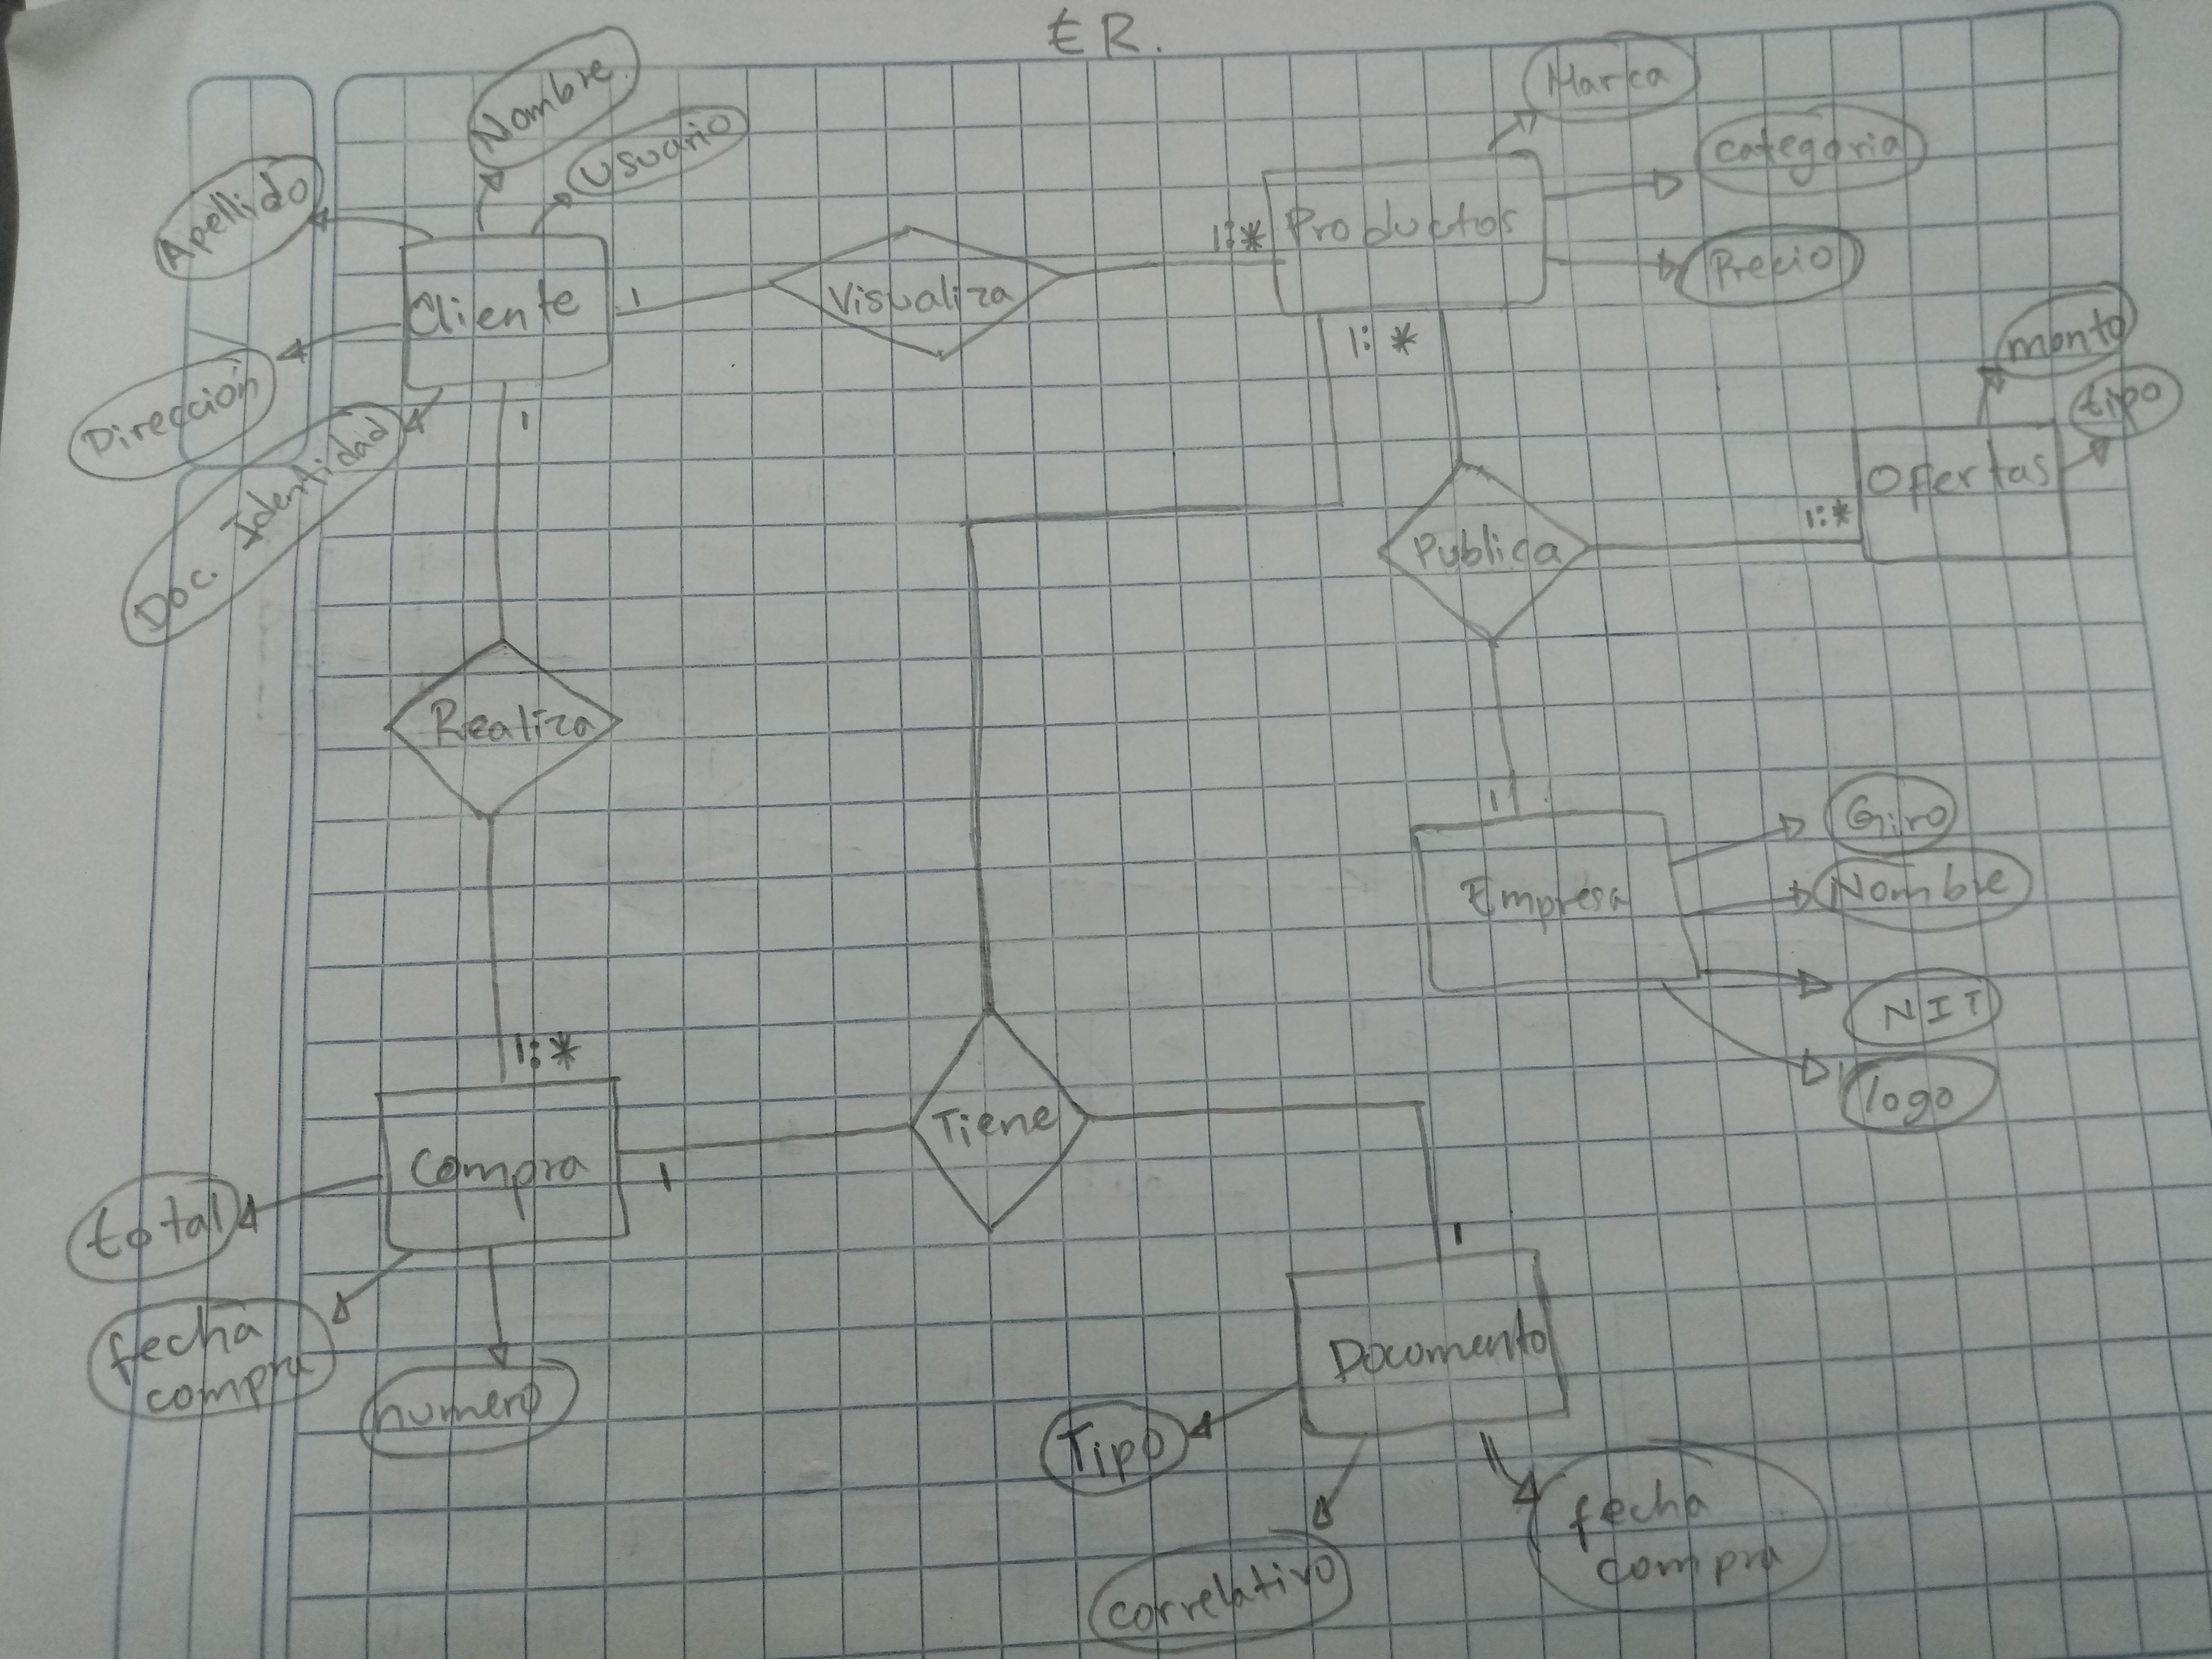 ER.
Nombre
Usuario
Apellido
Dirección
Doc. Identidad
Cliente
1
1
Visualiza
1:*
Productos
Marca
categoria
Precio
1: *
monto
tipo
Ofertas
1:*
Publica
1
Empresa
Giro
Nombre
NIT
logo
Realiza
1:*
Compra
1
Tiene
total
fecha
compra
numero
1
Documento
Tipo
correlativo
fecha
compra